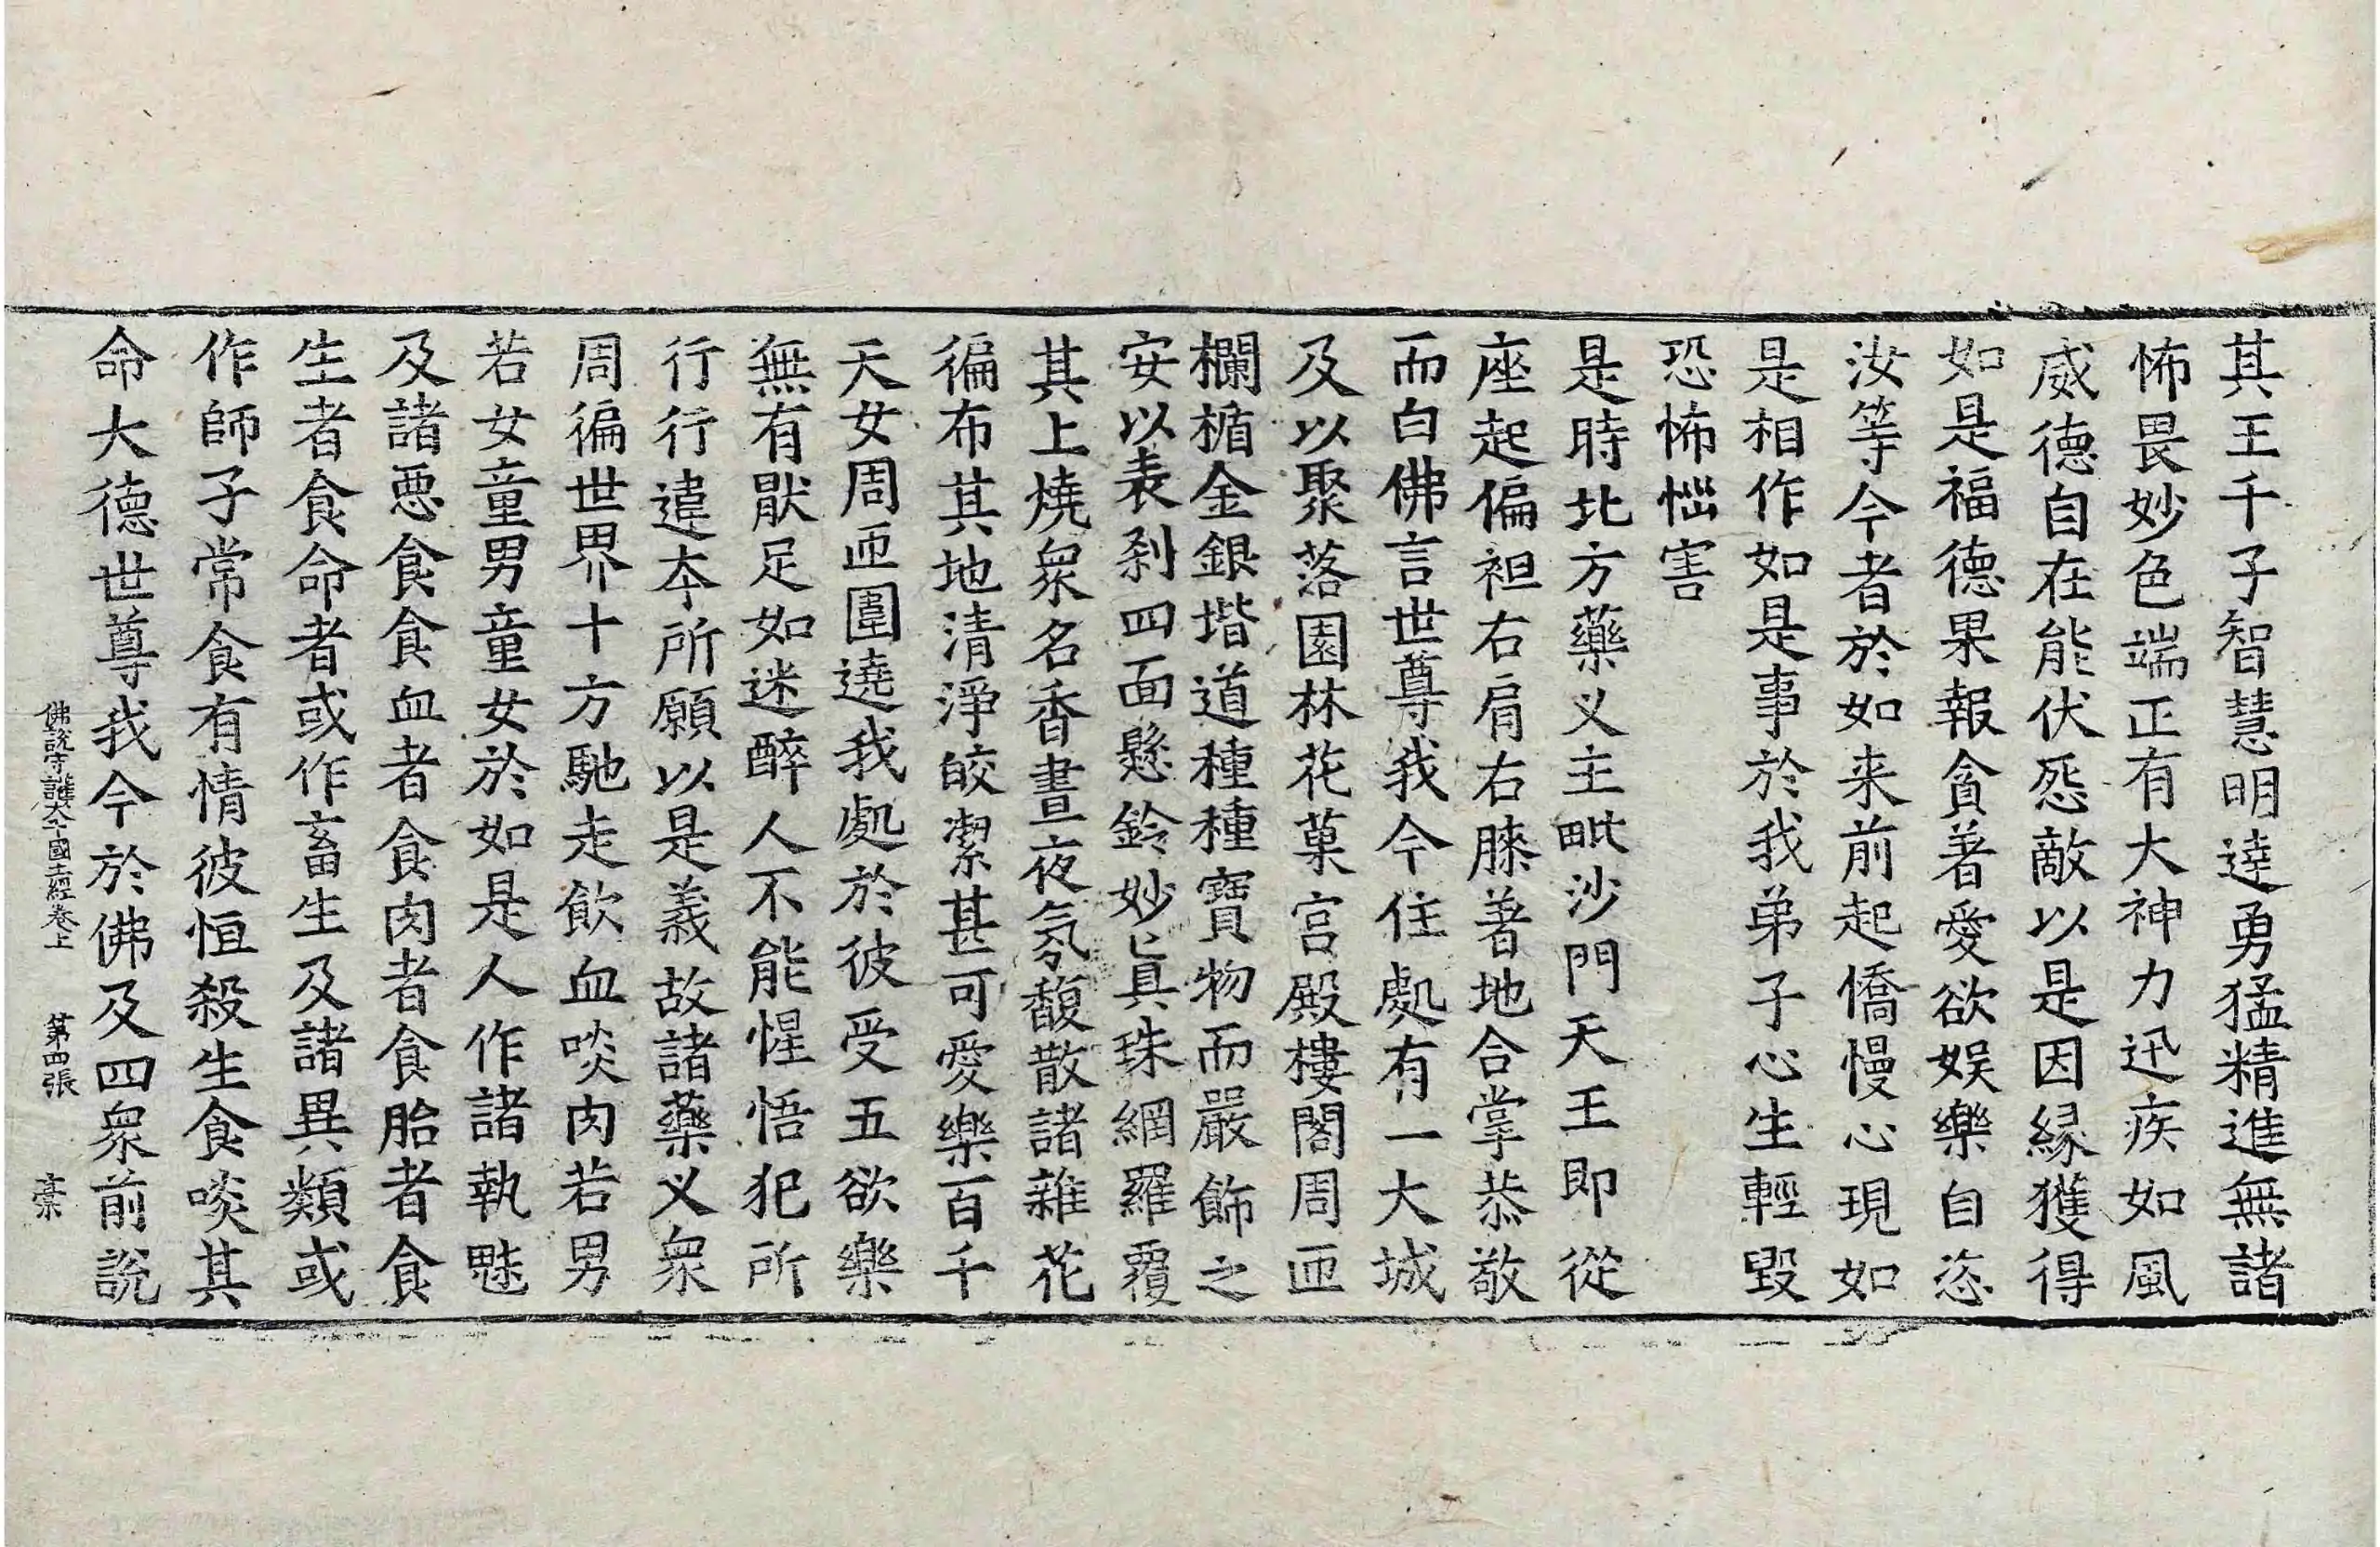 其王千子智慧明達勇猛精進無諸
怖畏妙色端正有大神力迅疾如風
威德自在能伏怨敵以是因縁獲得
如是福德果報貪著愛欲娛樂自恣
汝等今者於如来前起僑慢心現如
是相作如是事於我弟子心生輕毀
恐怖惱害
是時北方藥义主毗沙門天王即從
座起偏袒右肩右膝著地合掌恭敬
而白佛言世尊我今住處有一大城
及以聚落園林花菓宫殿樓閣周匝
欄楯金銀堦道種種寶物而嚴飾之
安以表刹四面懸鈴妙真珠網羅覆
其上燒衆名香晝夜氛馥散諸雜花
徧布其地清淨皎潔甚可愛樂百千
天女周匝圍遶我處於彼受五欲樂
無有猒足如迷醉人不能惺悟犯所
行行違本所願以是義故諸藥义衆
周徧世界十方馳走飲血啖肉若男
若女童男童女於如是人作諸執魅
及諸惡食食血者食肉者食胎者食
生者食命者或作畜生及諸異類或
作師子常食有情彼恒殺生食啖其
命大德世尊我今於佛及四衆前説
佛説守護大千國土經卷上 第四張 槀